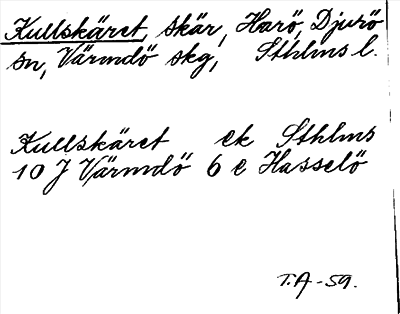 Kullskäret, skär, Harö, Djurö
sn, Värmdö skg, Sthlms l.
Kullskäret ek Sthlms
10 J Värmdö 6 e Hasselö
T.A-59.